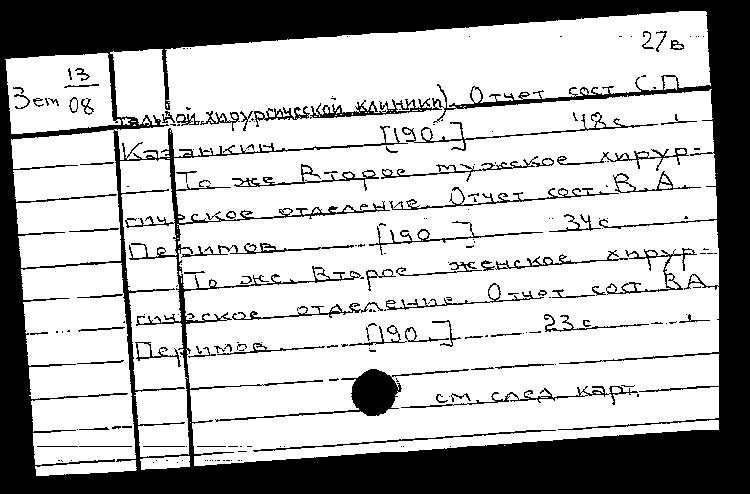 27в
Зет 13/08
тальной хирургической клиники). Отчет сост. С.П.
Казанкин. [190.] 48 с.
То же. Второе мужское хирур-
гическое отделение. Отчет сост. В.А.
Перимов. [190.] 34 с.
То же. Второе женское хирур-
гическое отделение. Отчет сост. В.А.
Перимов. [190.] 23 с.
см. след. карт.